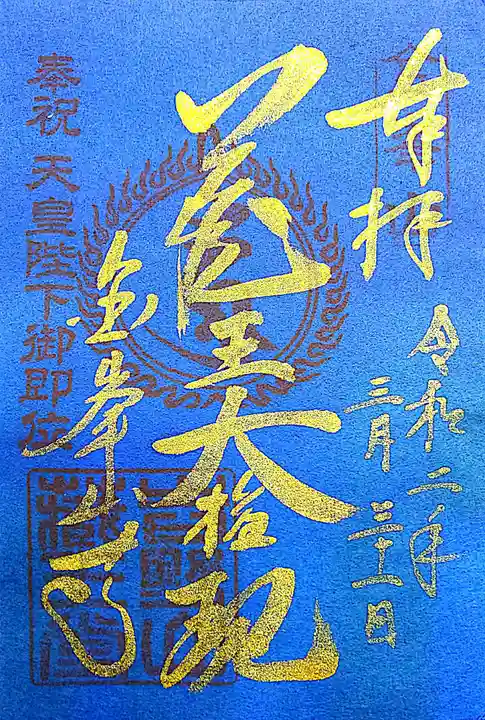 奉拝
令和二年
三月三十一日
蔵王大権現
金峯山寺
奉祝 天皇陛下御即位